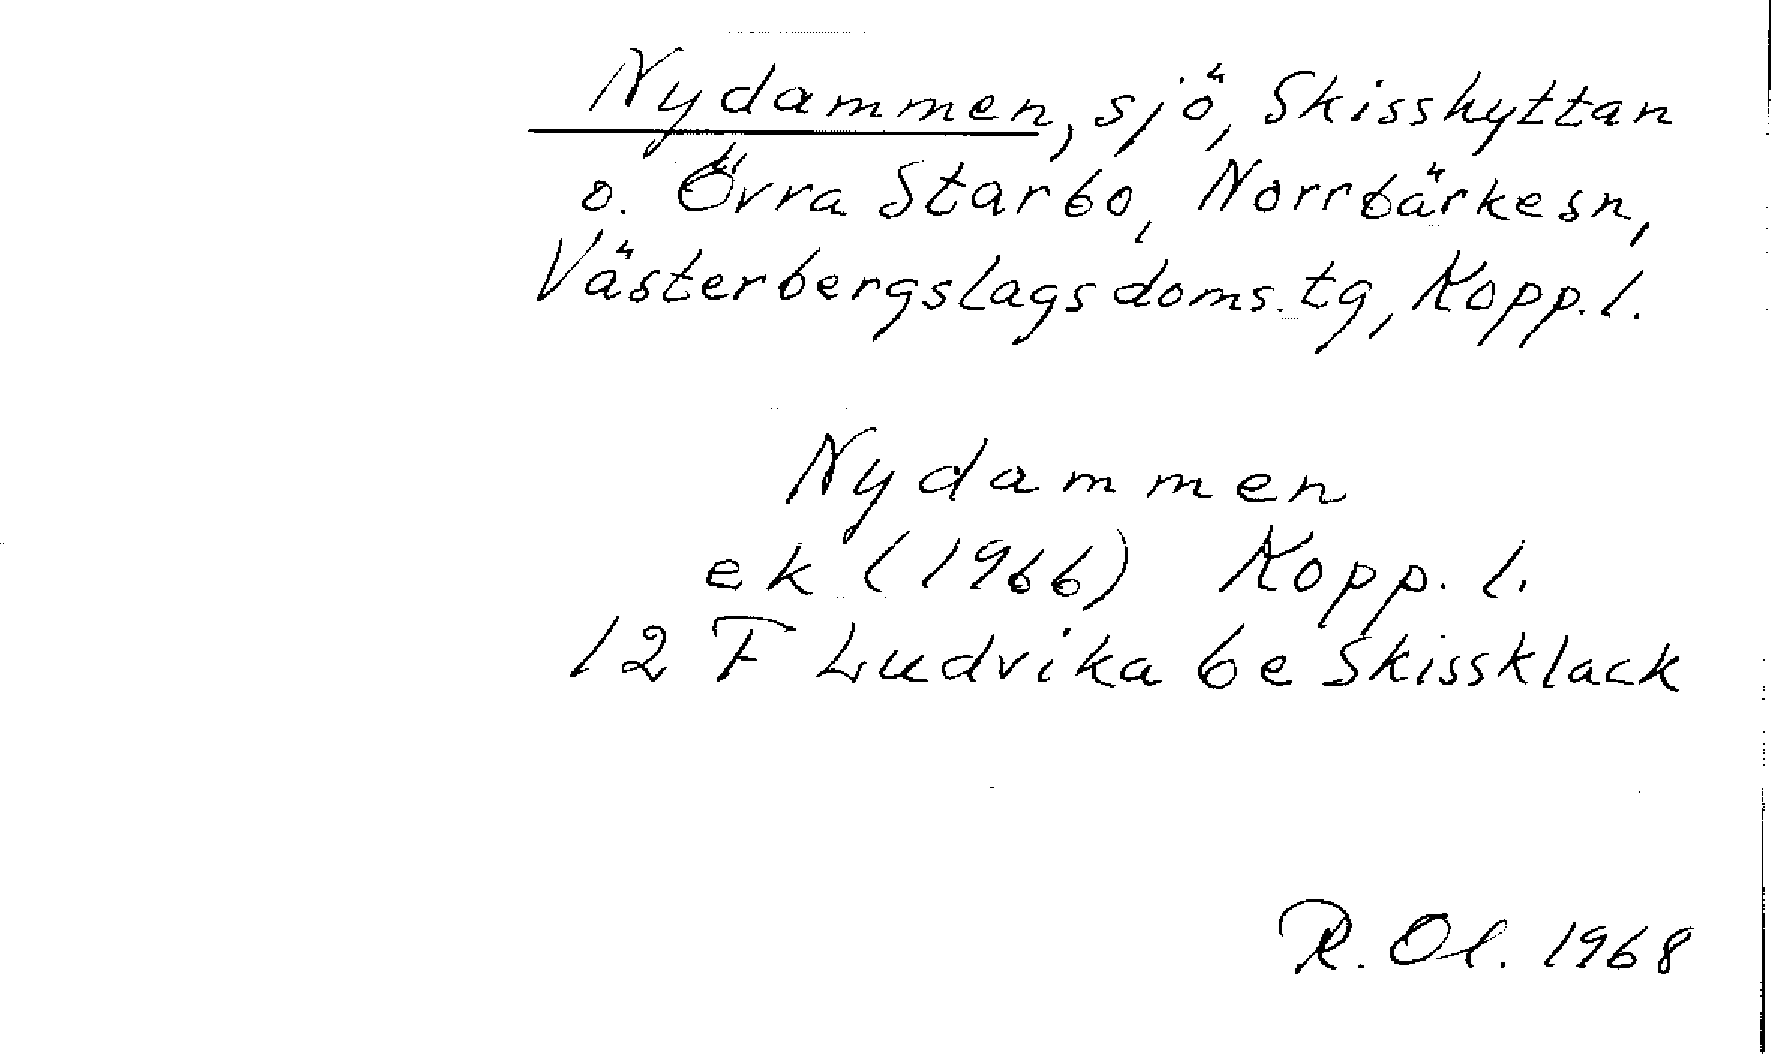 Nydammen, sjö, Skisshyttan
o. Övra Starbo, Norrbärkesn,
Västerbergslagsdoms.tg, Kopp.l.
Nydammen
ek (1966) Kopp. l.
12 F Ludvika 6e Skissklack
R. Ol. 1968